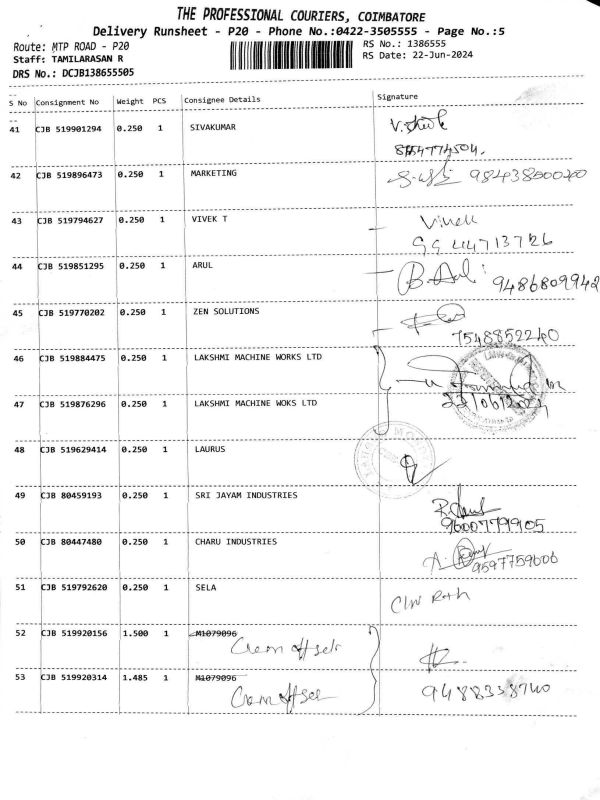 THE PROFESSIONAL COURIERS, COIMBATORE
Delivery Runsheet - P20 - Phone No.:0422-3505555 - Page No.:5
Route: MTP ROAD - P20 RS No.: 1386555
Staff: TAMILARASAN R RS Date: 22-Jun-2024
DRS No.: DCJB138655505
S No Consignment No Weight PCS Consignee Details Signature
41 CJB 519901294 0.250 1 SIVAKUMAR
42 CJB 519896473 0.250 1 MARKETING
43 CJB 519794627 0.250 1 VIVEK T Vivek
44 CJB 519851295 0.250 1 ARUL B. Arul
9486809942
45 CJB 519770202 0.250 1 ZEN SOLUTIONS
7548852240
46 CJB 519884475 0.250 1 LAKSHMI MACHINE WORKS LTD
47 CJB 519876296 0.250 1 LAKSHMI MACHINE WOKS LTD
48 CJB 519629414 0.250 1 LAURUS
49 CJB 80459193 0.250 1 SRI JAYAM INDUSTRIES
9600779905
50 CJB 80447480 0.250 1 CHARU INDUSTRIES
9597759606
51 CJB 519792620 0.250 1 SELA
52 CJB 519920156 1.500 1 M1079096
53 CJB 519920314 1.485 1 M1079096
9488338740